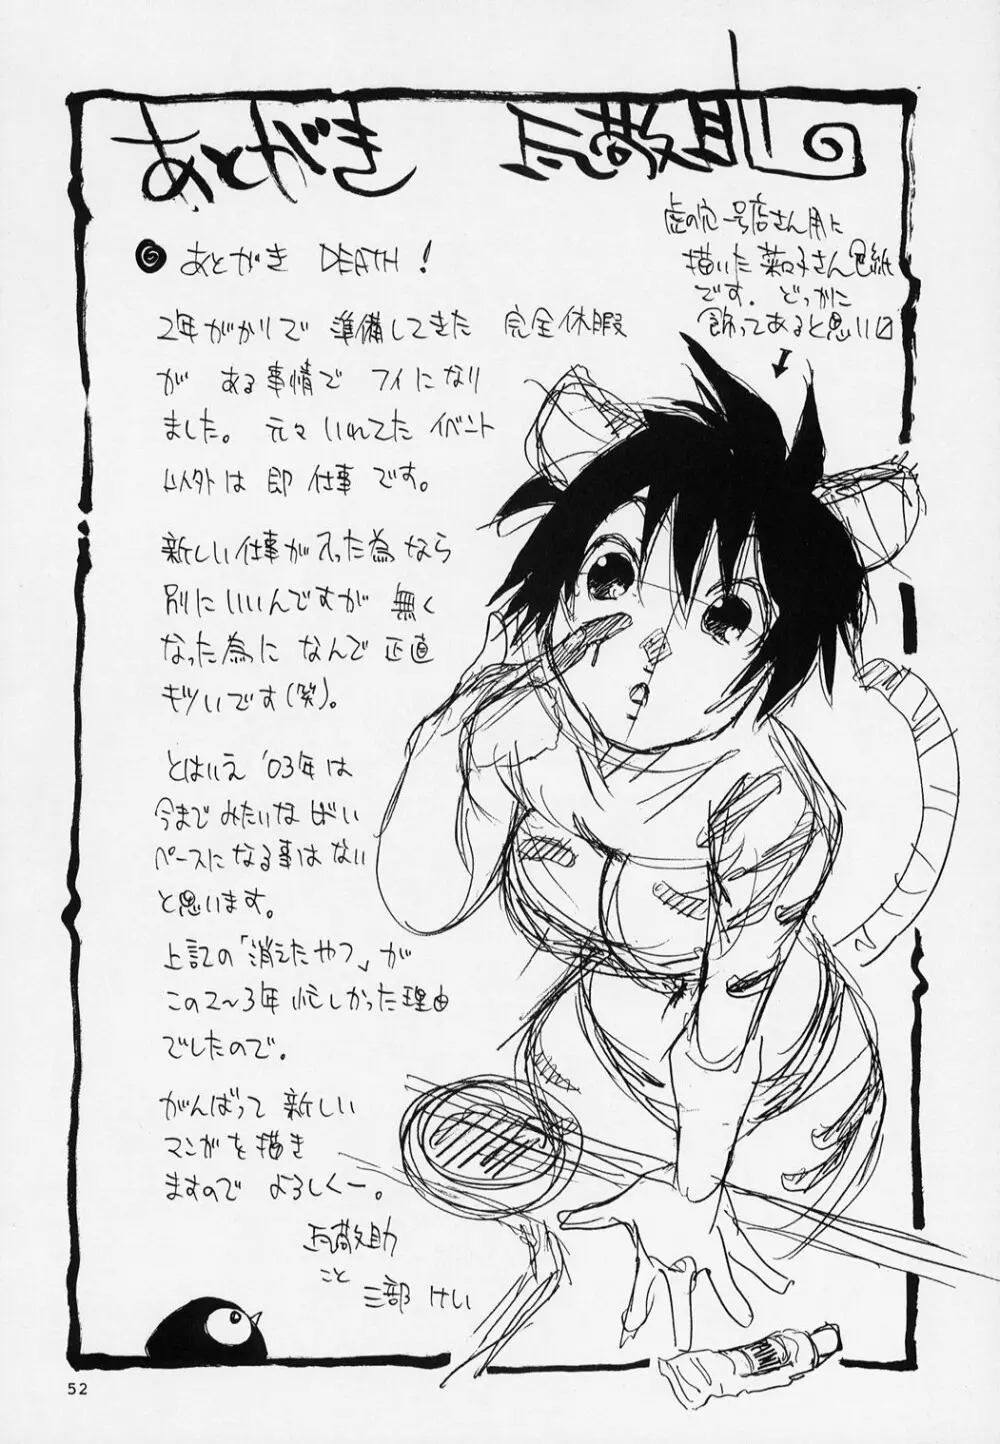 あとがき 瓦敬助
虎の穴一号店さん用に
描いた菜々子さん色紙
です。どっかに
飾ってあると思い□
あとがき DEATH!
2年がかりで 準備してきた 完全休暇
が ある事情で フイになり
ました。元々 いれてた イベント
以外は 即 仕事 です。
新しい仕事が入った為なら
別にいいんですが 無く
なった為に なんで 正直
キツいです(笑)。
とはいえ '03年は
今まで みたいな ばい
ペースになる事はない
と思います。
上記の「消えたやつ」が
この2〜3年 忙しかった理由
でしたので。
がんばって 新しい
マンガを描き
ますので よろしくー。
瓦敬助
こと
三部 けい
52